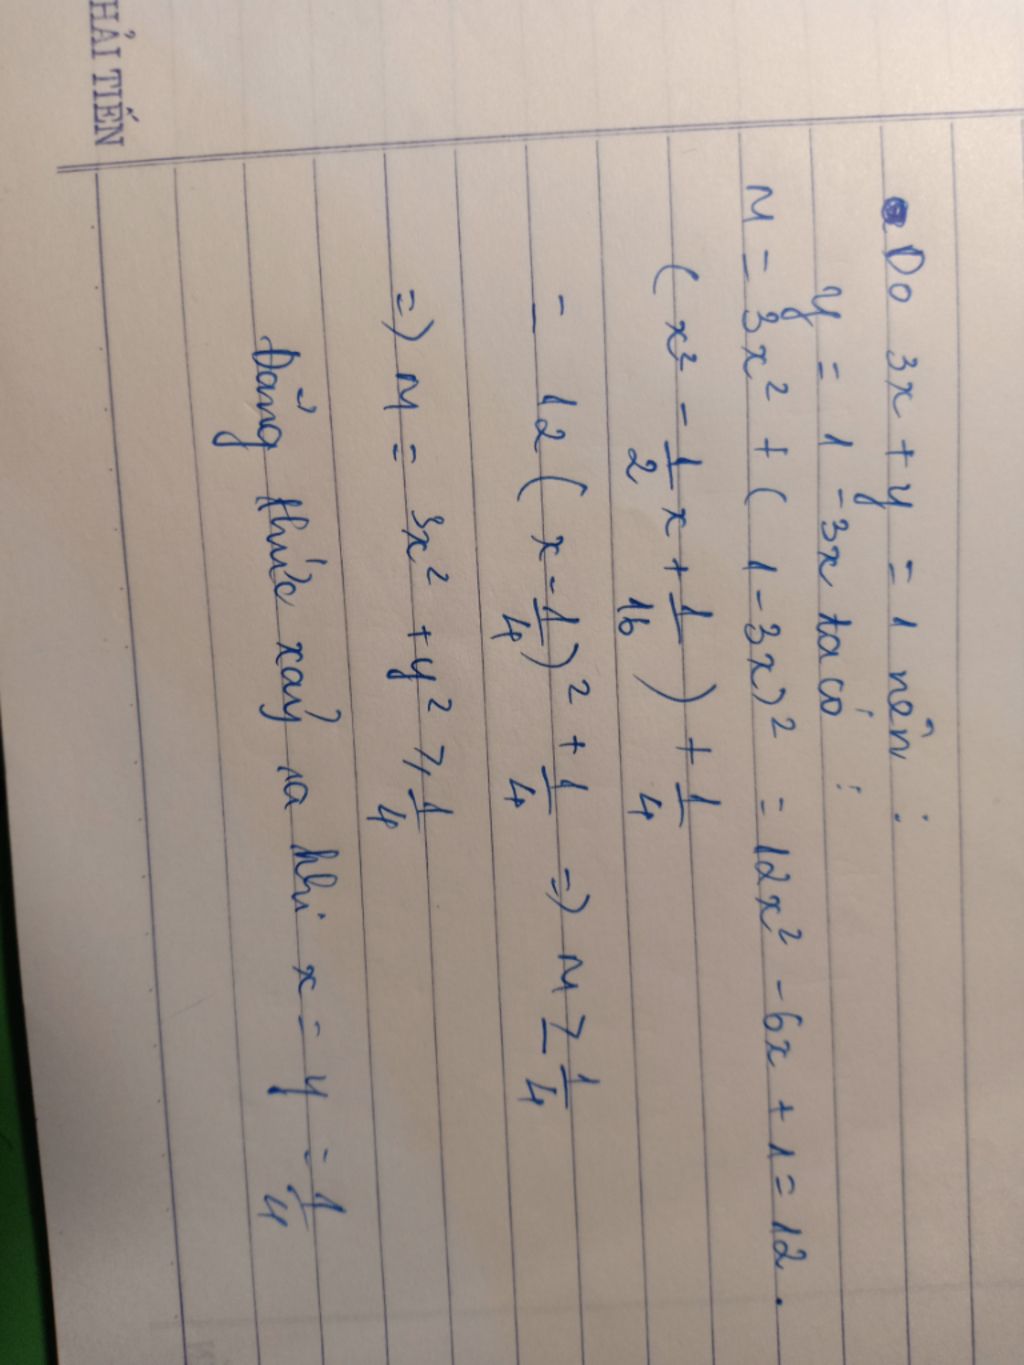 HẢI TIẾN
Do 3x + y = 1 nên :
y = 1 - 3x ta có :
M = 3x² + ( 1 - 3x)² = 12x² - 6x + 1 = 12 .
( x² - 1/2 x + 1/16 ) + 1/4
= 12 ( x - 1/4 )² + 1/4 => M ≥ 1/4
=> M = 3x² + y² ≥ 1/4
Dẳng thức xảy ra khi x = y = 1/4